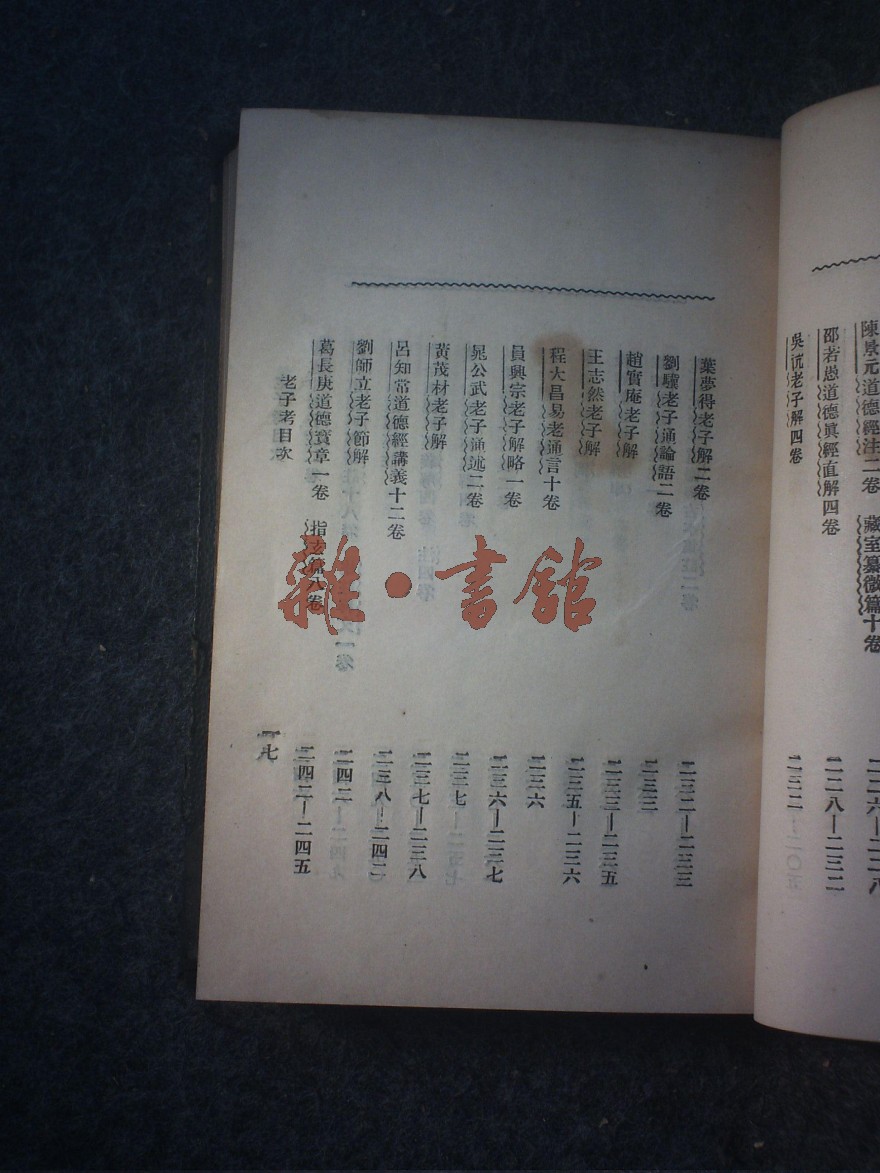 陳景元道德經注二卷　藏室纂微篇十卷
邵若愚道德眞經直解四卷　二二八—二三二
吳沆老子解四卷　二三二
葉夢得老子解二卷　二三二—二三三
劉驥老子通論語二卷　二三三
趙實庵老子解　二三三—二三五
王志然老子解　二三五—二三六
程大昌易老通言十卷　二三六
員興宗老子解略一卷　二三六—二三七
晁公武老子通述二卷　二三七
黃茂材老子解　二三七—二三八
呂知常道德經講義十二卷　二三八—二四二
劉師立老子節解　二四二
葛長庚道德寶章一卷　指玄篇八卷　二四二—二四五
老子考目次　一七
雜·書館